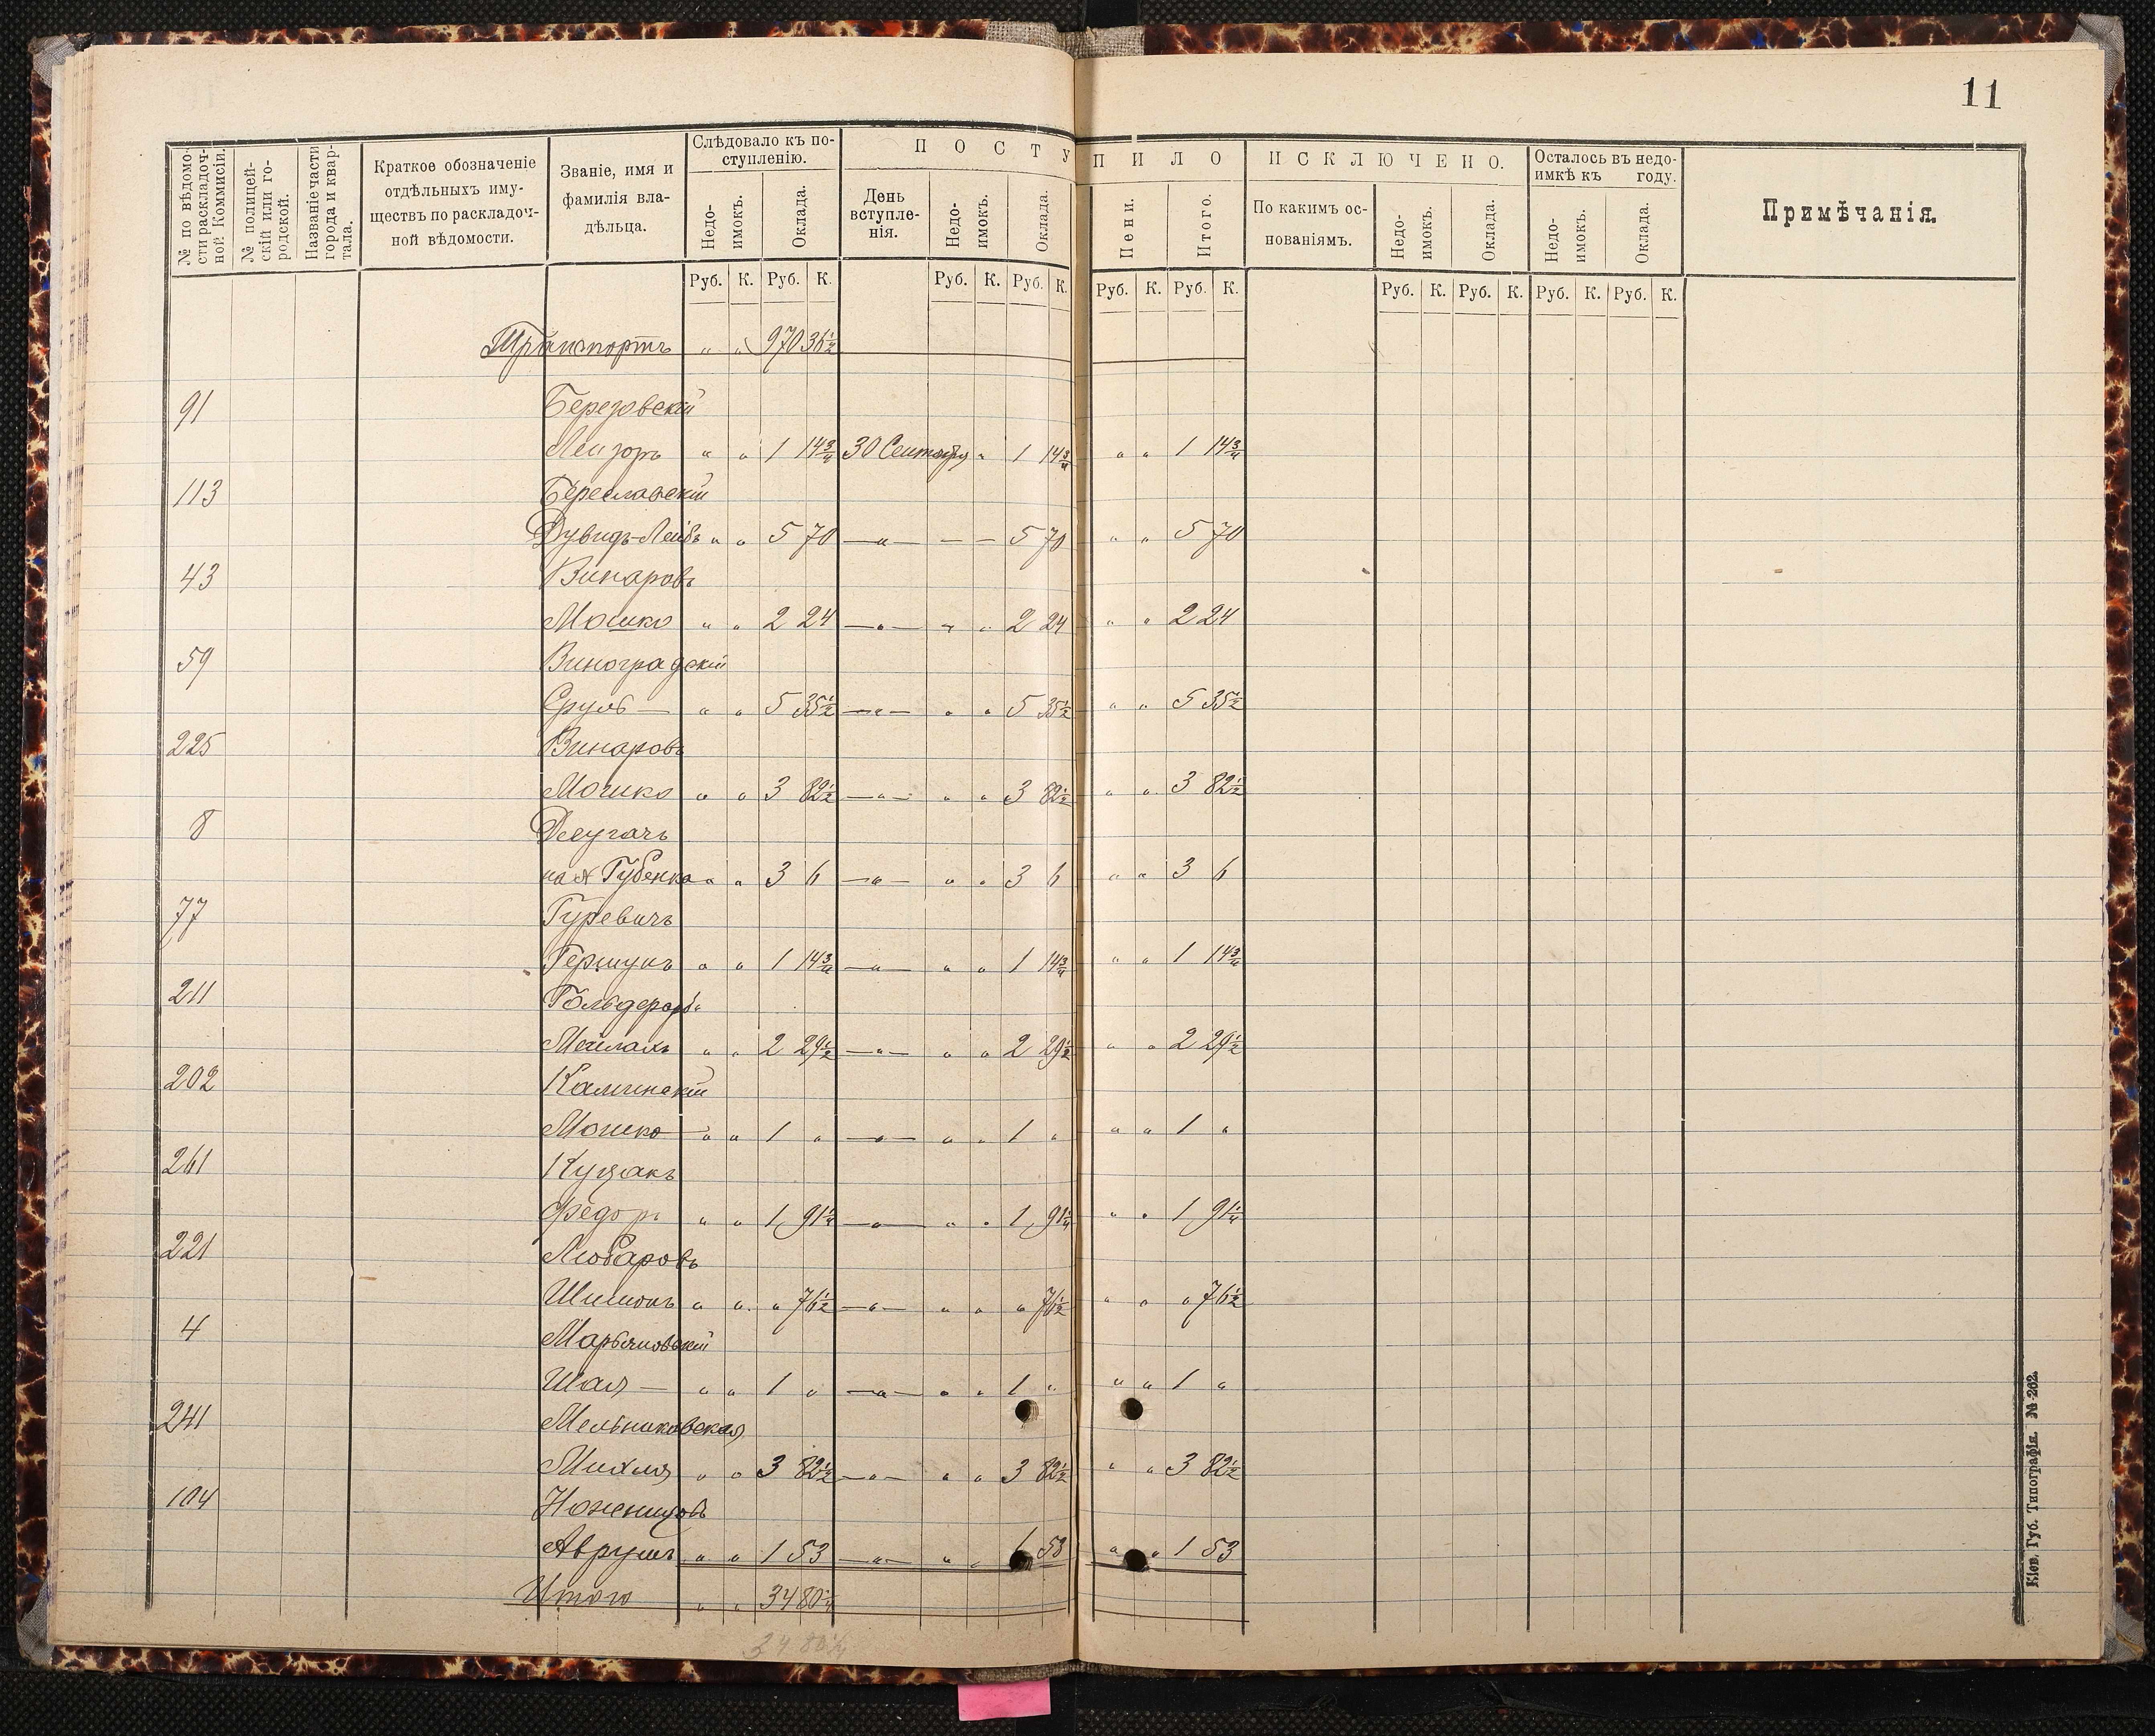 11
№ по вѣдомо-
сти раскладоч-
ной Коммисіи.
№ полицей-
скій или го-
родской.
Названіе части
города и квар-
тала.
Краткое обозначеніе
отдѣльныхъ иму-
ществъ по раскладоч-
ной вѣдомости.
Званіе, имя и
фамилія вла-
дѣльца.
Слѣдовало къ по-
ступленію.
Недо-
имокъ.
Оклада.
ПОСТУПИЛО
День
вступле-
нія.
Недо-
имокъ.
Оклада.
Пени.
Итого.
ИСКЛЮЧЕНО.
По какимъ ос-
нованіямъ.
Недо-
имокъ.
Оклада.
Осталось въ недо-
имкѣ къ году.
Недо-
имокъ.
Оклада.
Примѣчанія.
Руб. К. Руб. К. Руб. К. Руб. К. Руб. К. Руб. К. Руб. К. Руб. К. Руб. К. Руб. К.
Транспортъ " " 970 36½
91 Березовскій
Лейзоръ " " 1 14¾ 30 Сентября " 1 14¾ " " 1 14¾
113 Береславскій
Дувидъ-Лейбъ " " 5 70 —"— — — 5 70 " " 5 70
43 Винаровъ
Мошко " " 2 24 —"— " " 2 24 " " 2 24
59 Виноградскій
Сруль — " " 5 35½ —"— " " 5 35½ " " 5 35½
225 Винаровъ
Мошко " " 3 82½ —"— " " 3 82½ " " 3 82½
8
Губенко " " 3 6 —"— " " 3 6 " " 3 6
77 Гуревичъ
Гершунъ " " 1 14¾ —"— " " 1 14¾ " " 1 14¾
211
Мейлахъ " " 2 29½ —"— " " 2 29½ " " 2 29½
202 Каминскій
Мошко " " 1 " —"— " " 1 " " " 1 "
261
Федоръ " " 1 91¼ —"— " " 1 91¼ " " 1 91¼
221 Любаровъ
Шимонъ " " " 76½ —"— " " " 76½ " " " 76½
4 Марьяновскій
Шая — " " 1 " —"— " " 1 " " " 1 "
241 Мельниковская
Михля " " 3 82½ —"— " " 3 82½ " " 3 82½
104 Ноженцовъ
Аврумъ " " 1 53 —"— " " 1 53 " " 1 53
Итого " " 34 80¼
34 80¼
Кіев. Губ. Типографія. № 262.